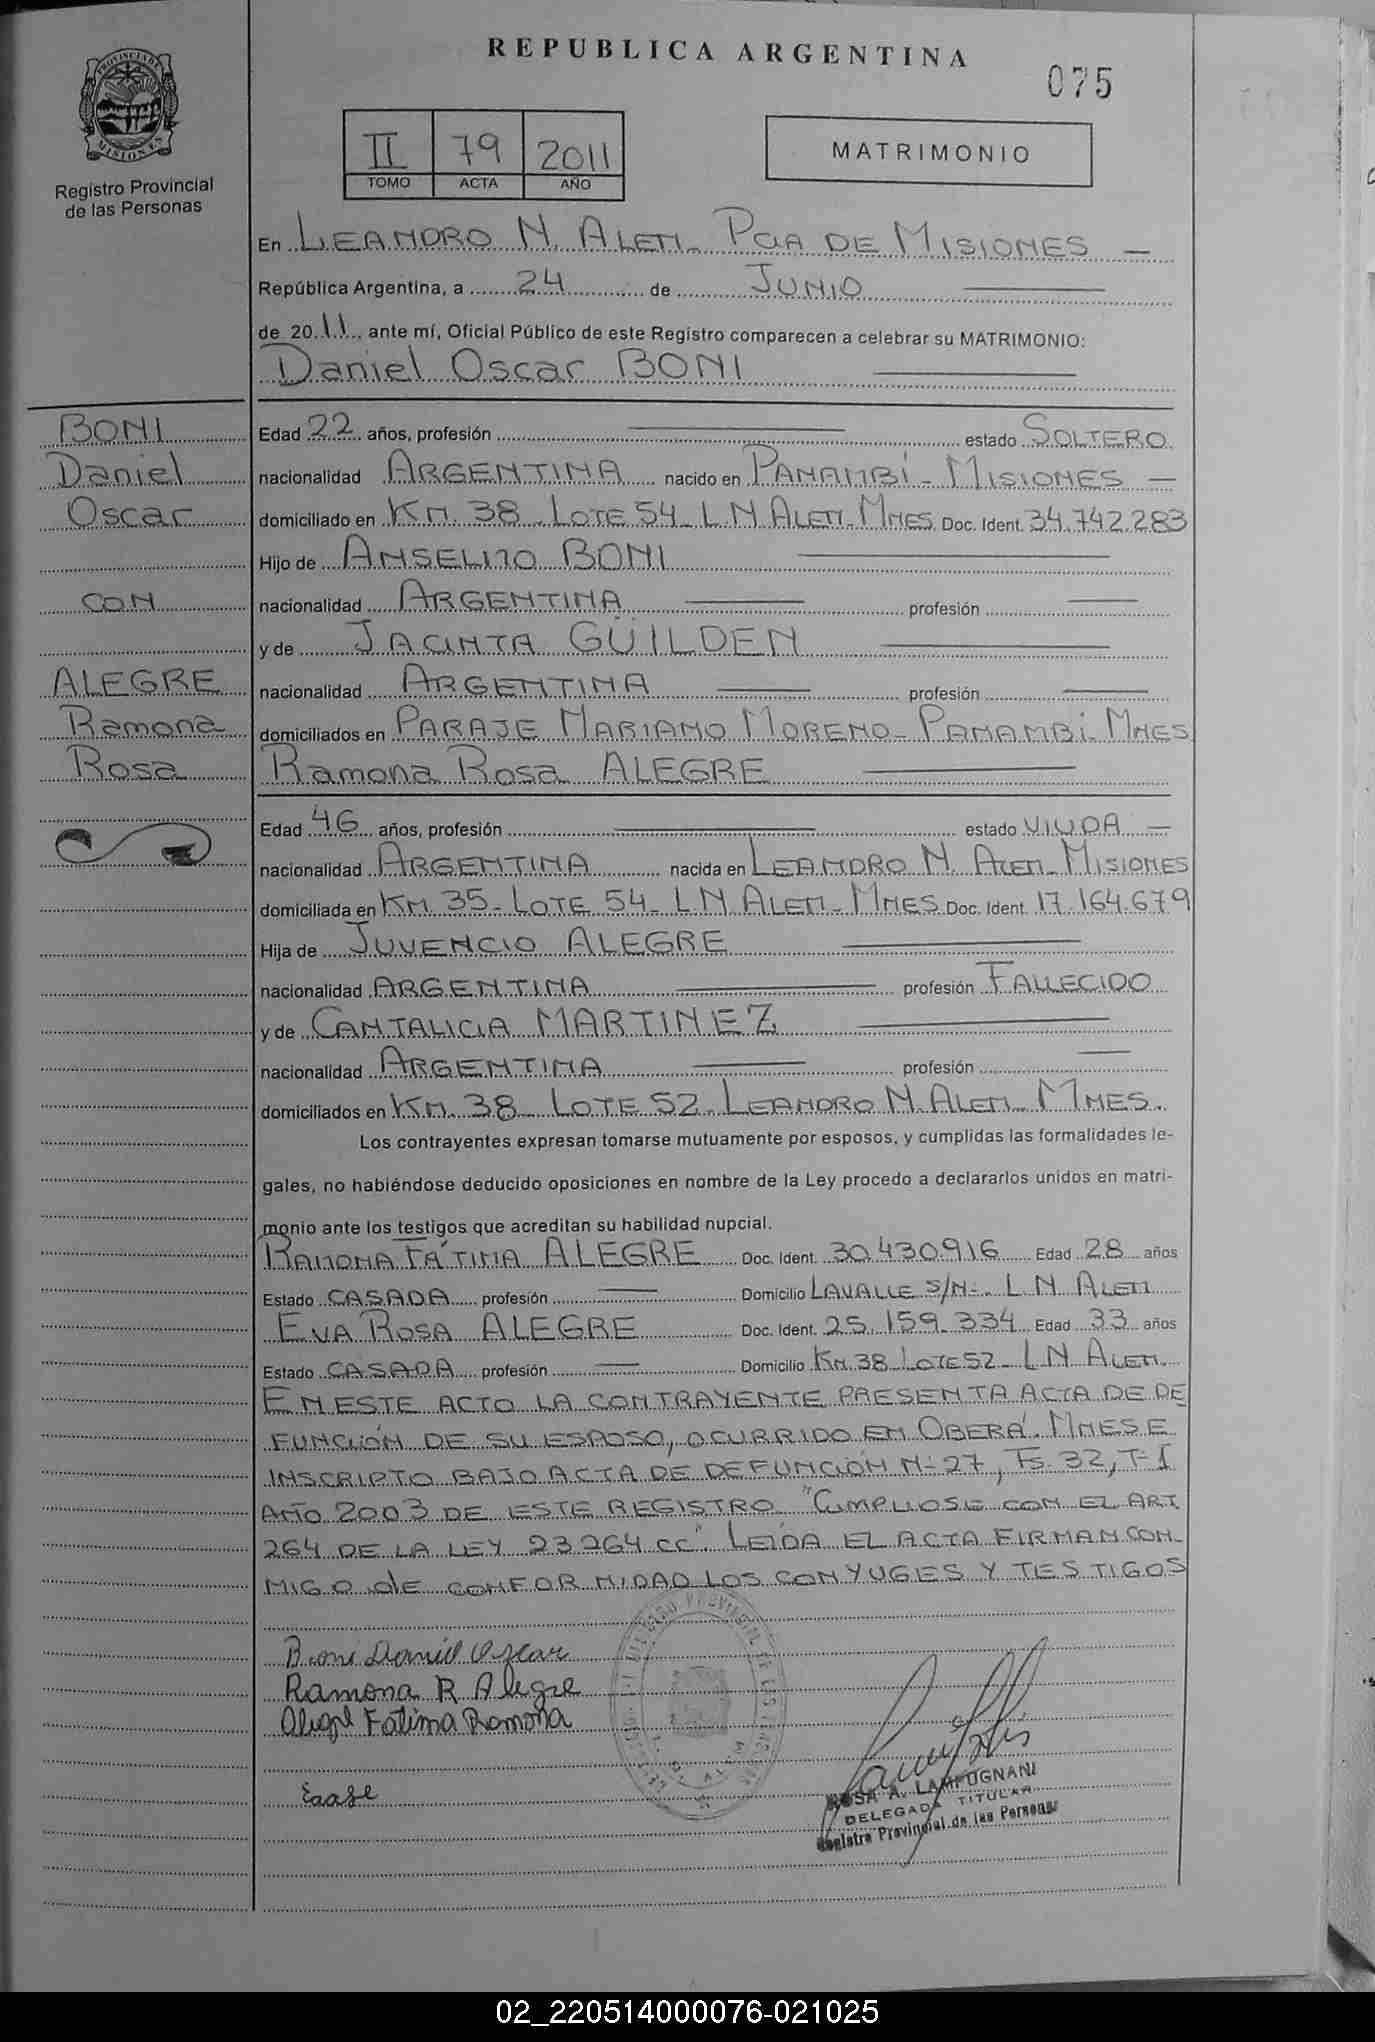 REPUBLICA ARGENTINA
075
PROVINCIA DE MISIONES
Registro Provincial
de las Personas
II 79 2011
TOMO ACTA AÑO
MATRIMONIO
En LEANDRO N. ALEM - PCIA DE MISIONES —
República Argentina, a 24 de JUNIO
de 2011, ante mí, Oficial Público de este Registro comparecen a celebrar su MATRIMONIO:
Daniel Oscar BONI
BONI
Daniel
Oscar
CON
ALEGRE
Ramona
Rosa
Edad 22 años, profesión — estado SOLTERO
nacionalidad ARGENTINA nacido en PANAMBÍ - MISIONES —
domiciliado en KM. 38 - LOTE 54 - L N ALEM - MNES Doc. Ident. 34.742.283
Hijo de ANSELMO BONI
nacionalidad ARGENTINA — profesión —
y de JACINTA GÜILDEN
nacionalidad ARGENTINA — profesión —
domiciliados en PARAJE MARIANO MORENO - PANAMBÍ - MNES
Ramona Rosa ALEGRE
Edad 46 años, profesión — estado VIUDA —
nacionalidad ARGENTINA nacida en LEANDRO N. ALEM - MISIONES
domiciliada en KM. 35 - LOTE 54 - L N ALEM - MNES Doc. Ident. 17.164.679
Hija de JUVENCIO ALEGRE
nacionalidad ARGENTINA — profesión FALLECIDO
y de CANTALICIA MARTINEZ
nacionalidad ARGENTINA — profesión —
domiciliados en KM. 38 LOTE 52 - LEANDRO N. ALEM - MNES.
Los contrayentes expresan tomarse mutuamente por esposos, y cumplidas las formalidades le-
gales, no habiéndose deducido oposiciones en nombre de la Ley procedo a declararlos unidos en matri-
monio ante los testigos que acreditan su habilidad nupcial.
RAMONA FÁTIMA ALEGRE Doc. Ident. 30.430.916 Edad 28 años
Estado CASADA profesión — Domicilio LAVALLE S/N - L N ALEM
EVA ROSA ALEGRE Doc. Ident. 25.159.334 Edad 33 años
Estado CASADA profesión — Domicilio KM. 38 LOTE 52 - L N ALEM.
EN ESTE ACTO LA CONTRAYENTE PRESENTA ACTA DE DE
FUNCIÓN DE SU ESPOSO, OCURRIDO EN OBERÁ. MNES E
INSCRIPTO BAJO ACTA DE DEFUNCIÓN N- 27, FS. 32, T- I
AÑO 2003 DE ESTE REGISTRO "CUMPLIOSE CON EL ART
264 DE LA LEY 23264 CC". LEÍDA EL ACTA FIRMAN CON-
MIGO de CONFORMIDAD LOS CONYUGES Y TESTIGOS
Boni Daniel Oscar
Ramona R Alegre
Alegre Fatima Ramona
ROSA A. LAMPUGNANI
DELEGADA TITULAR
Registro Provincial de las Personas
02_220514000076-021025